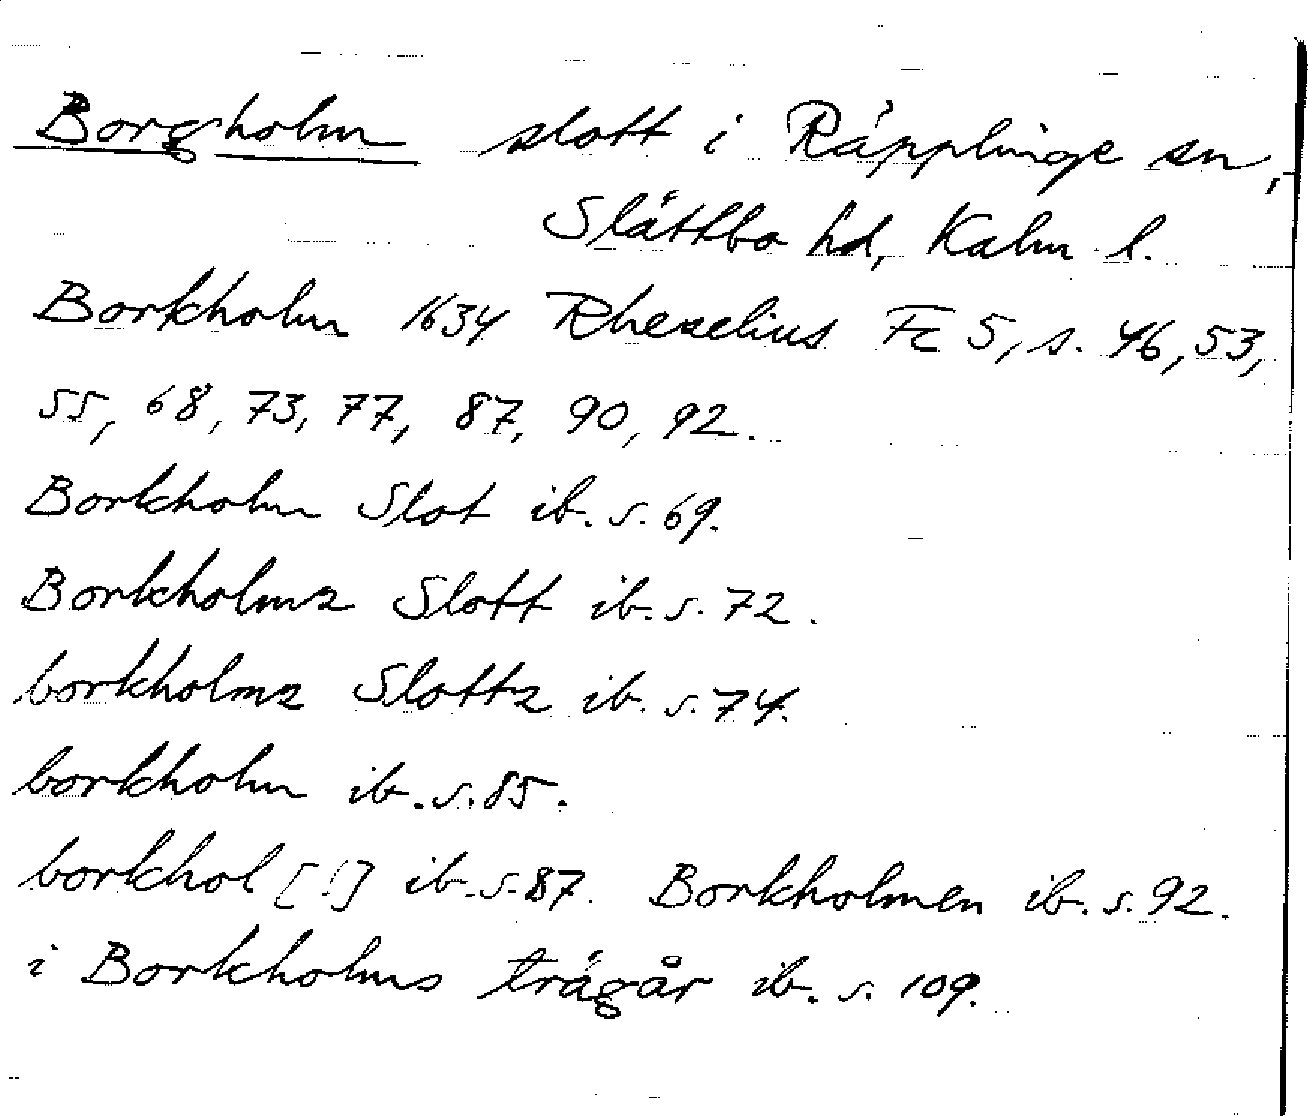 Borgholm slott i Räpplinge sn,
Slättbo hd, Kalm l.
Borkholm 1634 Rhezelius Fc 5, s. 46, 53,
55, 68, 73, 77, 87, 90, 92.
Borkholm Slot ib. s. 69.
Borkholmz Slott ib. s. 72.
borkholmz Slottz ib. s. 74.
borkholm ib. s. 85.
borkhol [!] ib. s. 87. Borkholmen ib. s. 92.
i Borkholms trägår ib. s. 109.